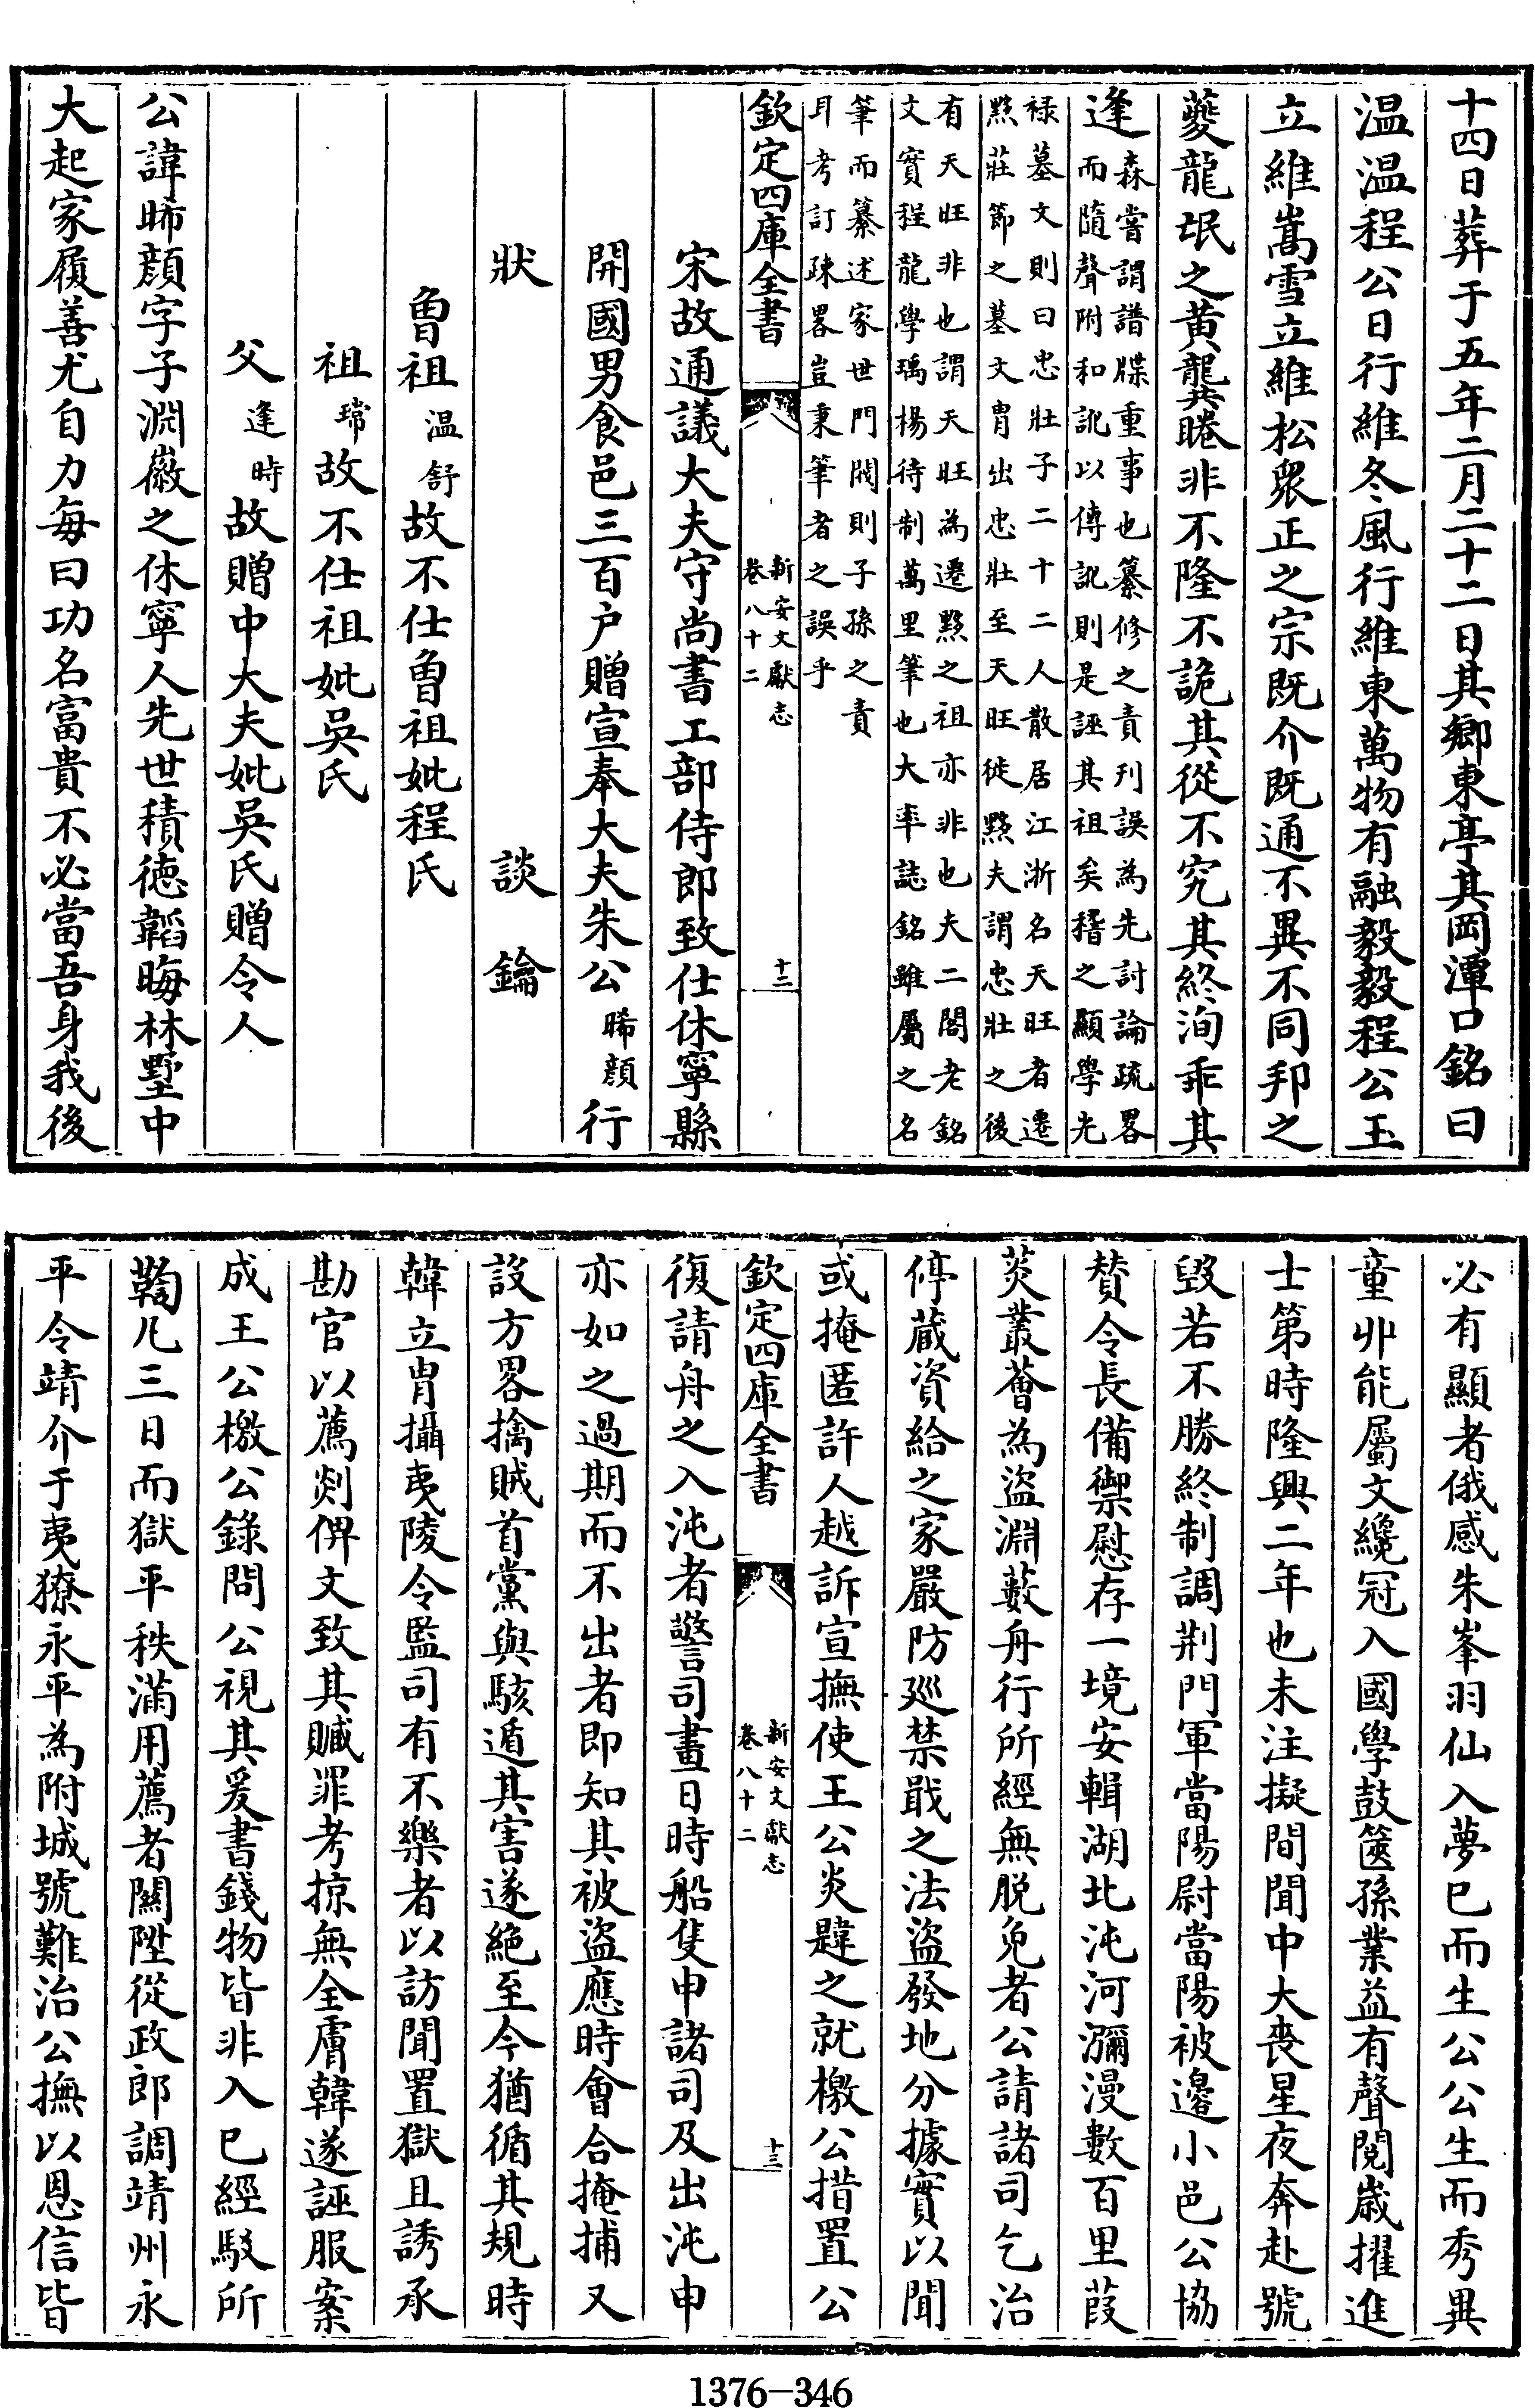 十四日葬于五年二月二十二日其鄉東亭其岡潭口銘曰
温温程公日行維冬風行維東萬物有融毅毅程公玉
立維嵩雪立維松衆正之宗既介既通不異不同邦之
夔龍氓之黄龔睠非不隆不詭其從不究其終洵乖其
逢
森嘗謂譜牒重事也纂修之責刋誤為先討論疏畧
而隨聲附和訛以傳訛則是誣其祖矣稽之顯學先
禄墓文則曰忠壯子二十二人散居江浙名天旺者遷
黟莊節之墓文胄出忠壯至天旺徙黟夫謂忠壯之後
有天旺非也謂天旺為遷黟之祖亦非也夫二閣老銘
文實程龍學瑀楊待制萬里筆也大率誌銘雖屬之名
筆而纂述家世門閥則子孫之責
耳考訂疎畧豈秉筆者之誤乎
欽定四庫全書
新安文獻志
卷八十二
十二
宋故通議大夫守尚書工部侍郎致仕休寧縣
開國男食邑三百户贈宣奉大夫朱公晞顔行
狀
談鑰
曾祖温舒故不仕曾祖妣程氏
祖瑺故不仕祖妣吳氏
父逢時故贈中大夫妣吳氏贈令人
公諱晞顔字子淵徽之休寧人先世積徳韜晦林墅中
大起家履善尤自力每曰功名富貴不必當吾身我後
必有顯者俄感朱峯羽仙入夢巳而生公公生而秀異
童丱能屬文纔冠入國學鼓篋孫業益有聲閲歲擢進
士第時隆興二年也未注擬間聞中大喪星夜奔赴號
毁若不勝終制調荆門軍當陽尉當陽被邊小邑公協
賛令長備禦慰存一境安輯湖北沌河瀰漫數百里葭
菼叢薈為盜淵藪舟行所經無脱免者公請諸司乞治
停蔵資給之家嚴防廵禁戢之法盜發地分據實以聞
或掩匿許人越訴宣撫使王公炎韙之就檄公措置公
欽定四庫全書
新安文獻志
卷八十二
十三
復請舟之入沌者警司畫日時船隻申諸司及出沌申
亦如之過期而不出者即知其被盜應時會合掩捕又
設方畧擒賊首黨與駭遁其害遂絶至今猶循其規時
韓立胄攝夷陵令監司有不樂者以訪聞置獄且誘承
勘官以薦剡俾文致其贓罪考掠無全膚韓遂誣服案
成王公檄公錄問公視其爰書錢物皆非入巳經駁所
鞫凡三日而獄平秩滿用薦者關陞從政郎調靖州永
平令靖介于夷獠永平為附城號難治公撫以恩信皆
1376-346